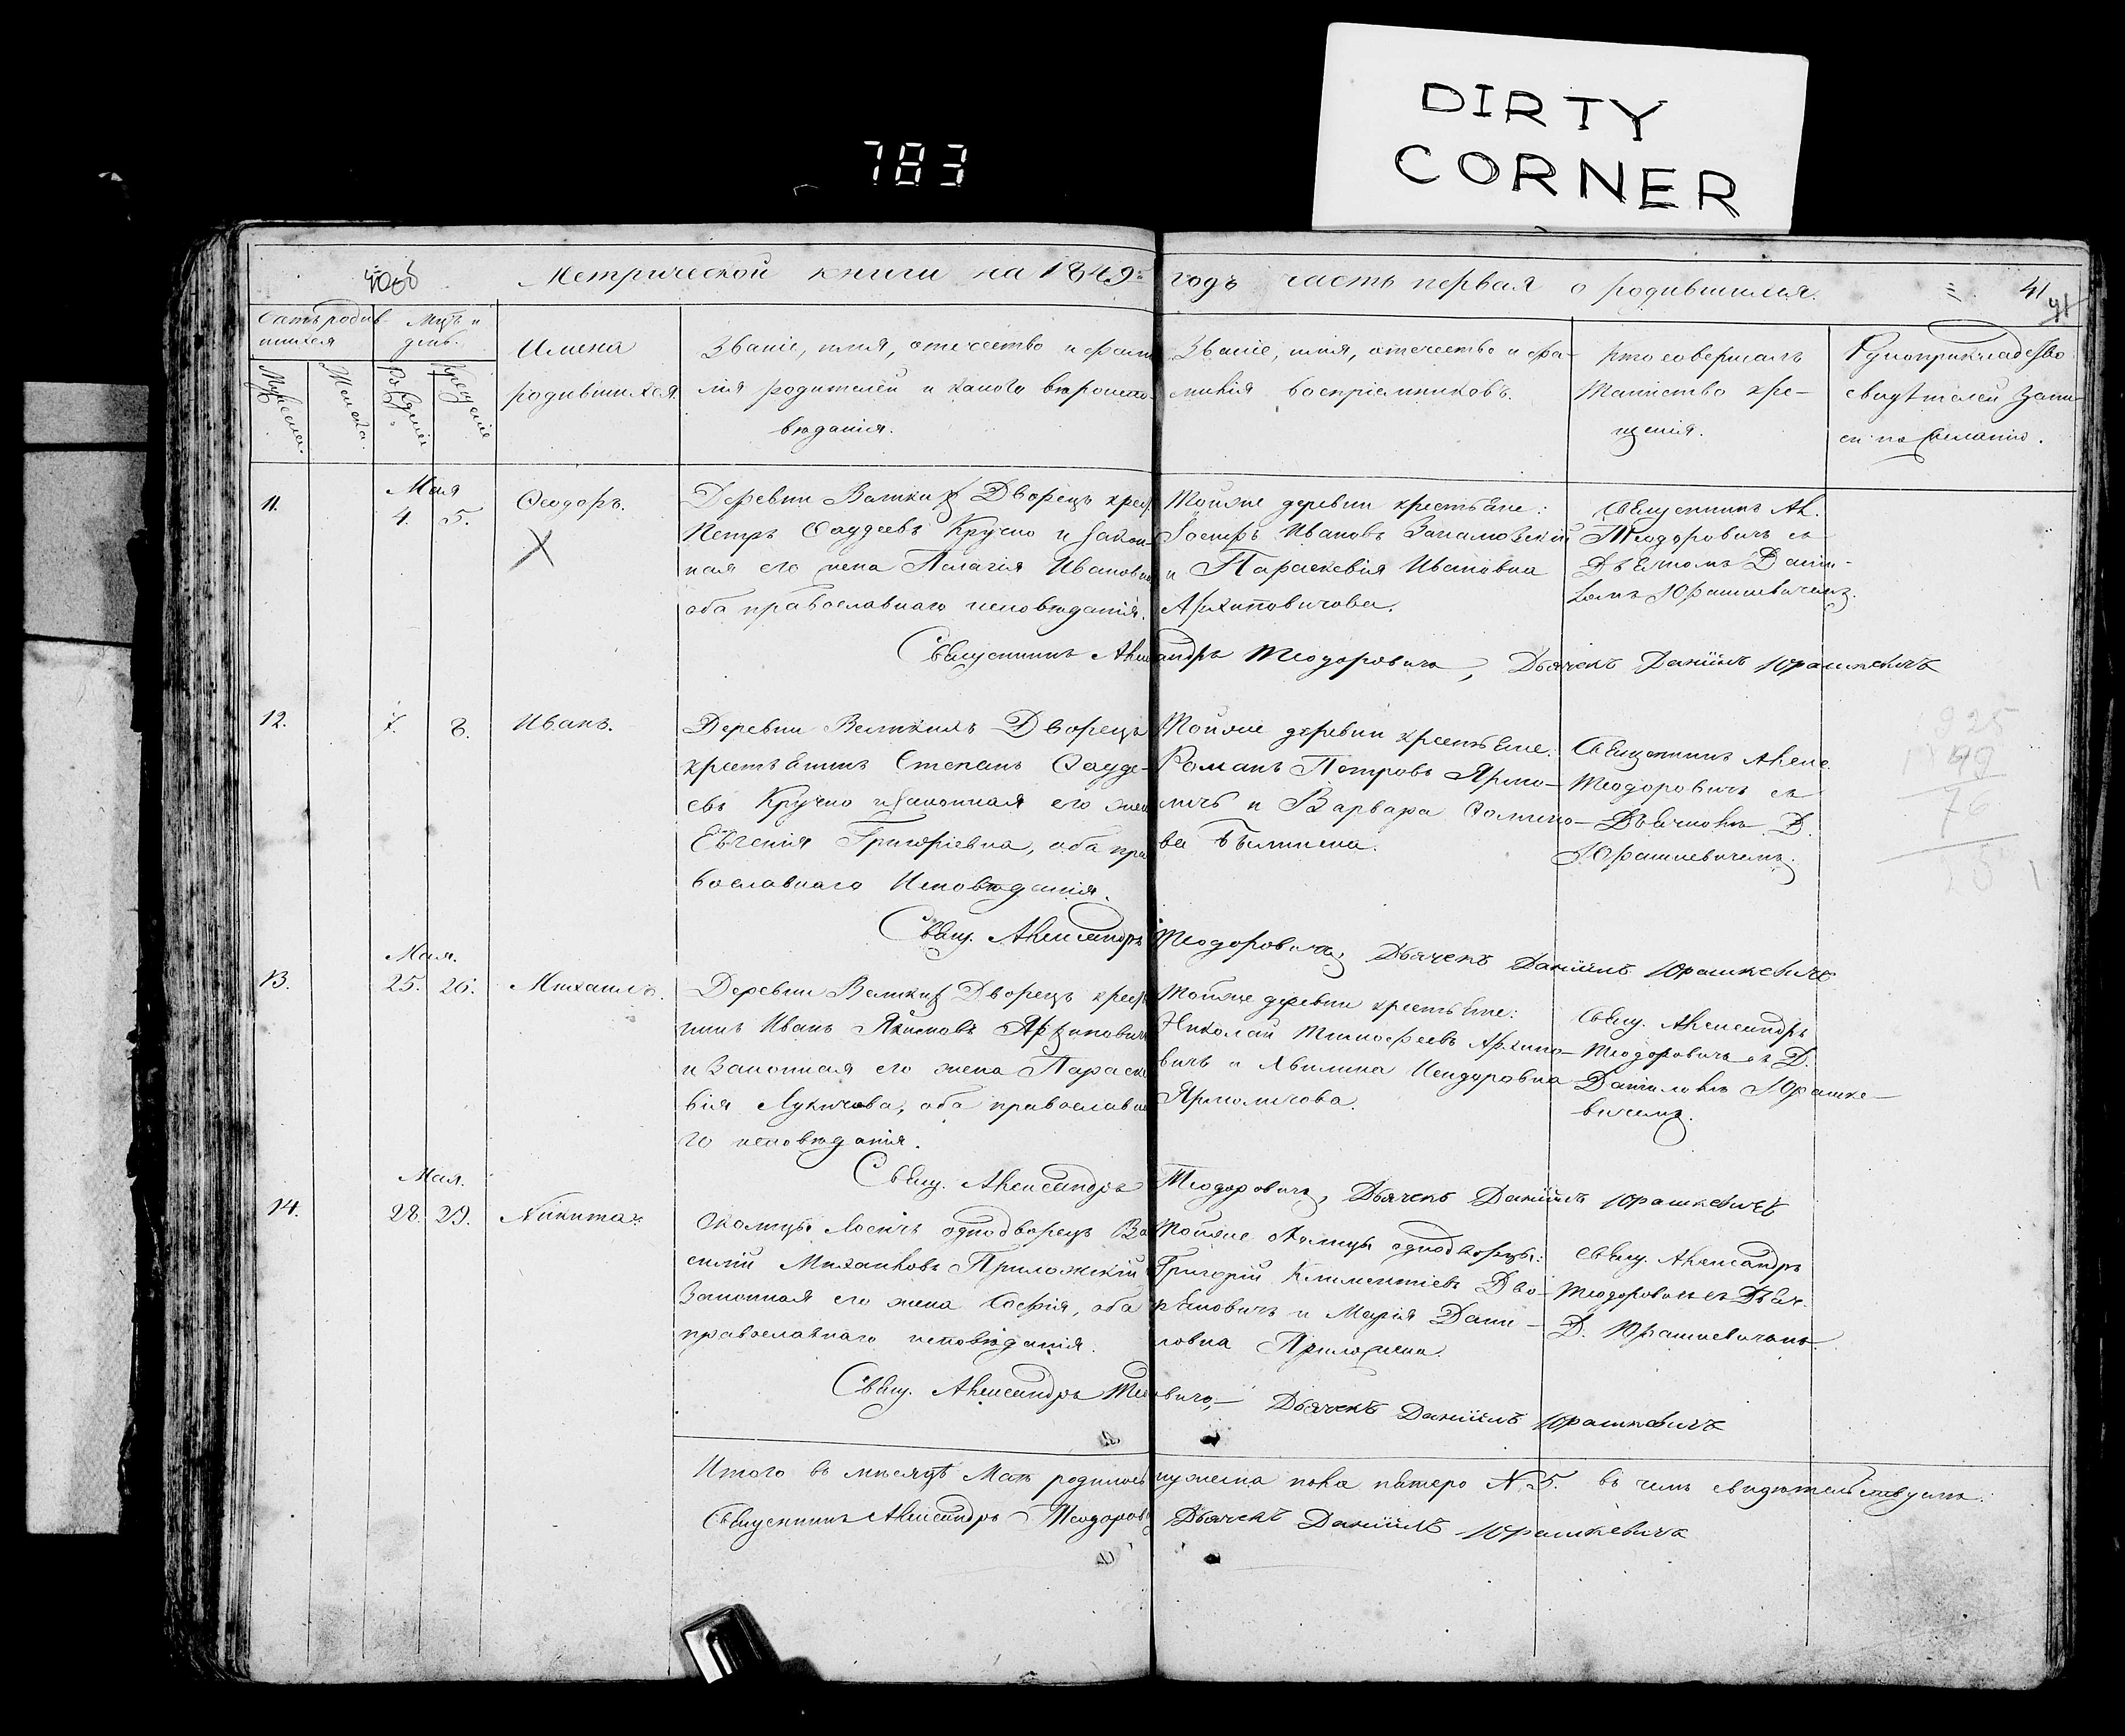 DIRTY
CORNER
783
Метрической книги на 1849 годъ часть первая о родившихся.
41
41
Мѣсц и
день.
Мужеска.
Женска.
Рожденія
Крещенія
Имена
родившихся.
Званіе, имя, отечество и фами
лія родителей и какого вѣроиспо
вѣданія.
Званіе, имя, отечество и фа-
милія воспріемниковъ.
Кто совершалъ
таинство кре-
щенія.
Рукоприкладство
свидѣтелей запи-
си по желанію.
11.
Мая
4. 5.
Ѳеодоръ.
Деревни Дворецъ крес
Петръ Ѳаддеевъ Кручко и закон-
ная его жена Палагія Ивановна
оба православнаго исповѣданія.
Тойже деревни крестьяне:
Ивановъ
и Параскевія Ивановна
Архиповичова.
Священникъ Ал.
Теодоровичъ съ
Дьячкомъ Дании-
ломъ Юрашкевичемъ.
Священникъ Александръ Теодоровичъ, Дьячекъ Даніилъ Юрашкевичъ
12.
7. 8.
Иванъ.
Деревни Великихъ Дворецъ
крестьянинъ Степанъ Ѳадде-
евъ Кручко и законная его жен
Евгенія Григоріевна, оба пра
вославнаго Исповѣданія.
Тойже деревни крестьяне:
Романъ Петровъ Ярмо-
личъ и Варвара
ва
Священникъ Алекс.
Теодоровичъ съ
Дьячкомъ Д.
Юрашкевичемъ.
925
49
76
Свящ. Александръ Теодоровичъ, Дьячекъ Даніилъ Юрашкевичъ
13.
Мая.
25. 26.
Михаилъ.
Деревни Великихъ Дворецъ крест
нинъ Иванъ Якимовъ Архипович
и Законная его жена Параске
вія Лукичова, оба православна
го исповѣданія.
Тойже деревни крестьяне:
Николай Тимофеевъ Архипо-
вичъ и Акилина Исидоровна
Ярмоличова.
Свящ. Александръ
Теодоровичъ съ Д.
Даниломъ Юрашке-
вичемъ.
Свящ. Александръ Теодоровичъ, Дьячекъ Даніилъ Юрашкевичъ
14.
Мая.
28. 29.
Никита.
Околицы Лосичъ однодворецъ Ва
силій Михайловъ Приложскій
Законная его жена Софія, оба
православнаго исповѣданія.
Тойже околицы однодворцы:
Григорій Климентіевъ Дво-
ряновичъ и Марія Дани-
ловна
Свящ. Александръ
Теодоровичъ съ Дьяч.
Д. Юрашкевичемъ.
Свящ. Александръ Теодоровичъ, Дьячекъ Даніилъ Юрашкевичъ
Итого въ мѣсяцѣ Маѣ родилось мужеска пола пятеро N. 5. въ чемъ свидѣтельствуемъ:
Священникъ Александръ Теодорови Дьячекъ Даніилъ Юрашкевичъ